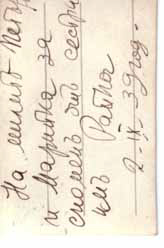 На милитѣ Петър
и Марийка за
споменъ отъ сестри
къ Райна
2-IX-39 год.